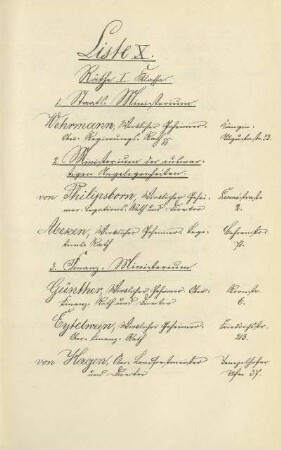 Liste X.
Räthe I. Klasse
1. Staats-Ministerium
Wehrmann, Wirklicher Geheimer-
Ober-Regierungs-Rath
2. Ministerium der auswär-
tigen Angelegenheiten
von Philipsborn, Wirklicher Gehei-
mer-Legations-Rath und Director
2.
Abeken, Wirklicher Geheimer Lega-
tions-Rath
3. Finanz-Ministerium
Günther, Wirklicher Geheimer Ober-
Finanz-Rath und Director
6.
Eytelwein, Wirklicher Geheimer-
Ober-Finanz-Rath
213.
von Hagen, Ober-Landforstmeister Tempelhofer
und Director Ufer